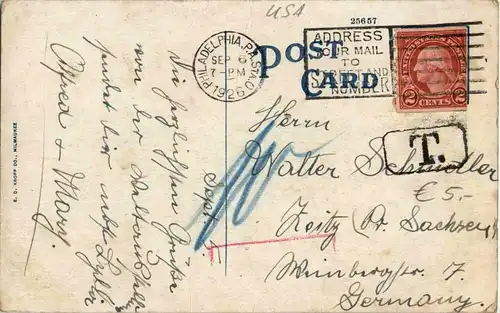 USA
25657
POST CARD
PHILADELPHIA, PA.
SEP 6
7-PM
1926
ADDRESS
YOUR MAIL
TO
STREET AND
NUMBER
2 CENTS 2
T.
Die herzlichsten Grüße
von der Weltausstellung
sendet dir nebst
Alfred & Mary.
Herrn
Walter Schindler
€ 5-
Zeitz (Pr. Sachsen)
Weinbergstr. 7
Germany.
E. C. KROPP CO., MILWAUKEE